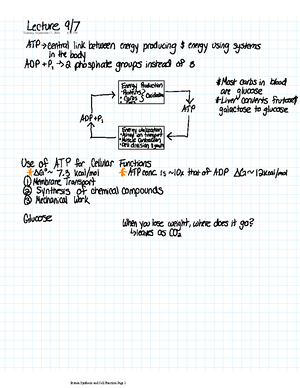 Lecture 9/7
ATP → central link between energy producing & energy using systems
in the body
ADP + Pi → 2 phosphate groups instead of 3
Energy Production
• Proteins
• Carbs } Oxidation
*Most carbs in blood
are glucose
*Liver converts fructose/
galactose to glucose
ADP + Pi
ATP
Energy Utilization
• Active ion transport
• Muscle Contraction
Use of ATP for Cellular Functions
* ΔG° ~ 7.3 kcal/mol
* ATP conc. is ~10x that of ADP ΔG ~ 12 kcal/mol
① Membrane Transport
② Synthesis of chemical compounds
③ Mechanical Work
Glucose
When you lose weight, where does it go?
↳ leaves as CO2
Protein Synthesis and Cell Function Page 1